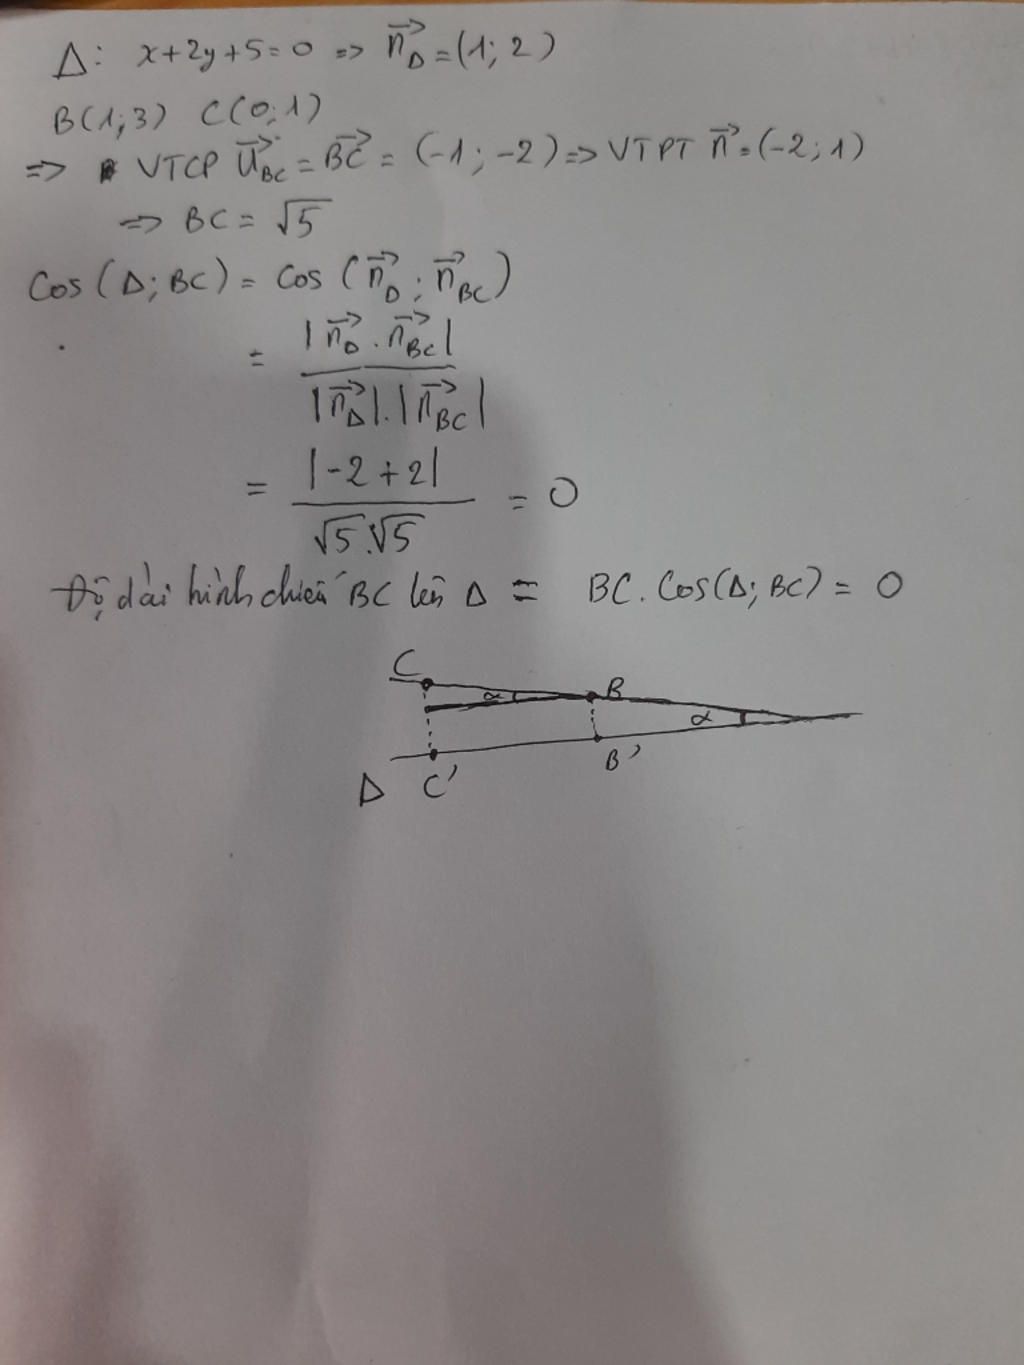 Δ: x+2y+5=0 => n⃗_Δ=(1; 2)
B(1;3) C(0;1)
=> VTCP u⃗_BC = B⃗C⃗ = (-1; -2) => VTPT n⃗=(-2; 1)
=> BC = √5
Cos(Δ; BC) = Cos(n⃗_Δ; n⃗_BC)
= |n⃗_Δ . n⃗_BC| / |n⃗_Δ|.|n⃗_BC|
= |-2+2| / √5.√5 = 0
Độ dài hình chiếu BC lên Δ = BC. Cos(Δ; BC) = 0
C
α
B
α
Δ
C'
B'